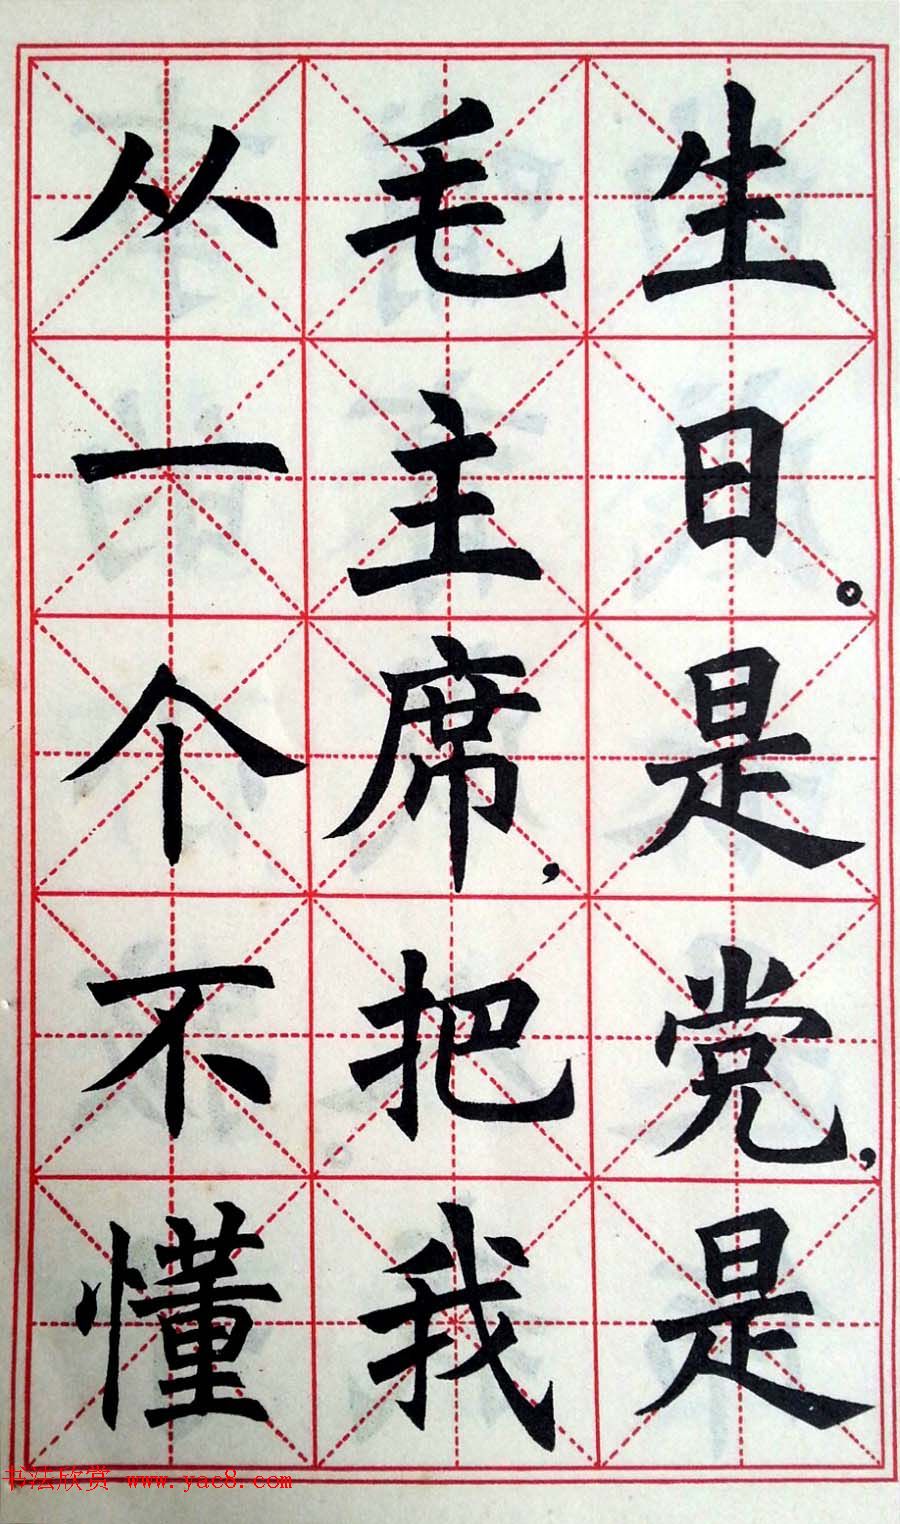 生日。是党，是
毛主席，把我
从一个不懂
书法欣赏 www.yac8.com